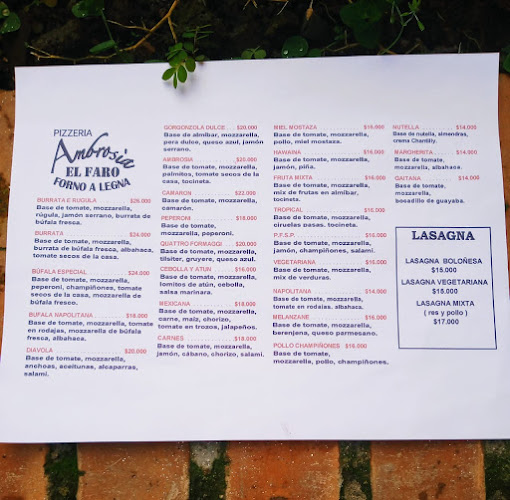 PIZZERIA
Ambrosia
EL FARO
FORNO A LEGNA
BURRATA E RUGULA $26.000
Base de tomate, mozzarella,
rúgula, jamón serrano, burrata de
búfala fresca.
BURRATA $24.000
Base de tomate, mozzarella,
burrata de búfala fresca, albahaca,
tomate secos de la casa.
BÚFALA ESPECIAL $24.000
Base de tomate, mozzarella,
peperoni, champiñones, tomate
secos de la casa, mozzarella de
búfala fresco.
BUFALA NAPOLITANA $19.000
Base de tomate, mozzarella, tomate
en rodajas, mozzarella de búfala
fresco, albahaca.
DIAVOLA $20.000
Base de tomate, mozzarella,
anchoas, aceitunas, alcaparras,
salami.
GORGONZOLA DULCE $20.000
Base de almibar, mozzarella,
pera dulce, queso azul, jamón
serrano.
AMBROSIA $20.000
Base de tomate, mozzarella,
palmitos, tomate secos de la
casa, tocineta.
CAMARON $22.000
Base de tomate, mozzarella,
camarón.
PEPERONI $18.000
Base de tomate,
mozzarella, peperoni.
QUATTRO FORMAGGI $20.000
Base de tomate, mozzarella,
tilsiter, gruyere, queso azul.
CEBOLLA Y ATUN $16.000
Base de tomate, mozzarella,
lomitos de atún, cebolla,
salsa marinara.
MEXICANA $18.000
Base de tomate, mozzarella,
carne, maíz, chorizo,
tomate en trozos, jalapeños.
CARNES $18.000
Base de tomate, mozzarella,
jamón, cábano, chorizo, salami.
MIEL MOSTAZA $16.000
Base de tomate, mozzarella,
pollo, miel mostaza.
HAWAINA $16.000
Base de tomate, mozzarella,
jamón, piña.
FRUTA MIXTA $16.000
Base de tomate, mozzarella,
mix de frutas en almibar,
tocineta.
TROPICAL $16.000
Base de tomate, mozzarella,
ciruelas pasas. tocineta.
P.F.S.P $16.000
Base de tomate, mozzarella,
jamón, champiñones, salami.
VEGETARIANA $15.000
Base de tomate, mozzarella,
mix de verduras.
NAPOLITANA $14.000
Base de tomate, mozzarella,
tomate en rodajas, albahaca.
MELANZANE $16.000
Base de tomate, mozzarella,
berenjena, queso parmesano.
POLLO CHAMPIÑONES $16.000
Base de tomate,
mozzarella, pollo, champiñones.
NUTELLA $14.000
Base de nutella, almendras,
crema Chantilly.
MARGHERITA $14.000
Base de tomate,
mozzarella, albahaca.
GAITANA $14.000
Base de tomate,
mozzarella,
bosadillo de guayaba.
LASAGNA
LASAGNA BOLOÑESA
$15.000
LASAGNA VEGETARIANA
$15.000
LASAGNA MIXTA
( res y pollo )
$17.000